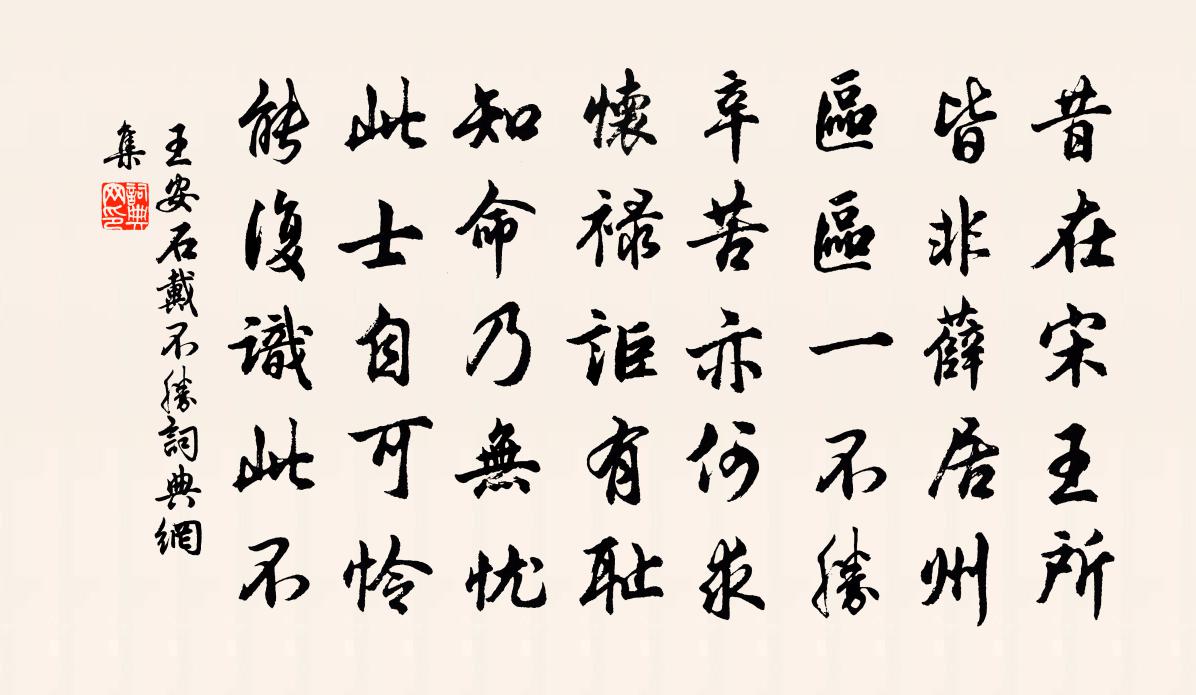 昔在宋王所
皆非薛居州
區區一不勝
辛苦亦何求
懷禄詎有恥
知命乃無忧
此士自可怜
能復識此不
王安石戴不勝詞典網
集
詞典
网印